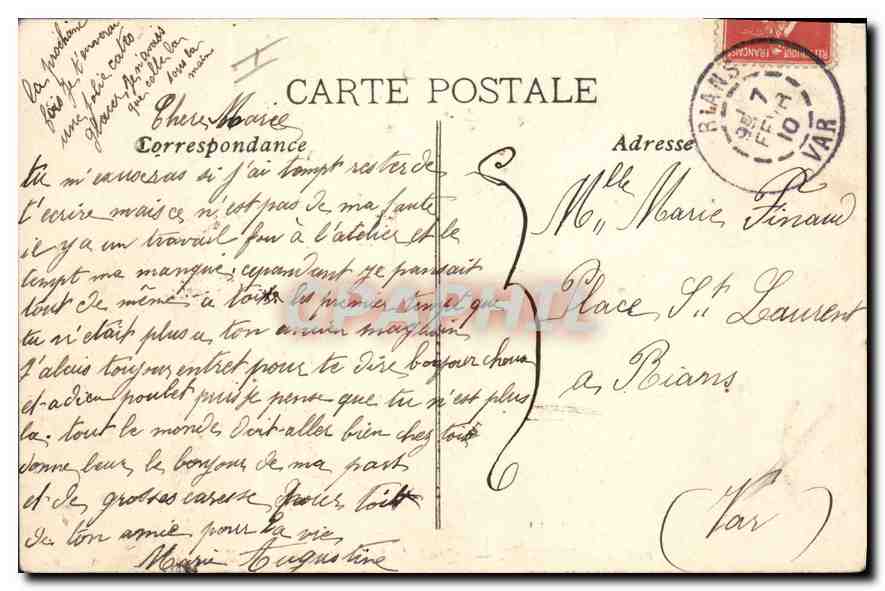 la prochaine
fois je t'enverai
une jolie carte
glacer je n'avais
que celle la
sous la
main
I
CARTE POSTALE
Chere Marie
Correspondance
Adresse
RIANS
7
FEVR
10
VAR
tu m'excuseras si j'ai tempt rester de
t'ecrire mais ce n'est pas de ma faute
il y a un travail fou à l'atelier et le
tempt ma manqué, cependant je pansait
tout de même a toit les premier tempt que
tu n'était plus a ton ancien magasin
J'alais toujours entret pour te dire bonjour choux
et adieu poulet puis je pense que tu n'est plus
la. tout le monde doit aller bien chez toit
donne leur le bonjour de ma part
et de grosses caresse pour toit
de ton amie pour la vie
Marie Augustine
Mlle Marie Finaud
Place St Laurent
a Rians
(Var)
CPAPHIL